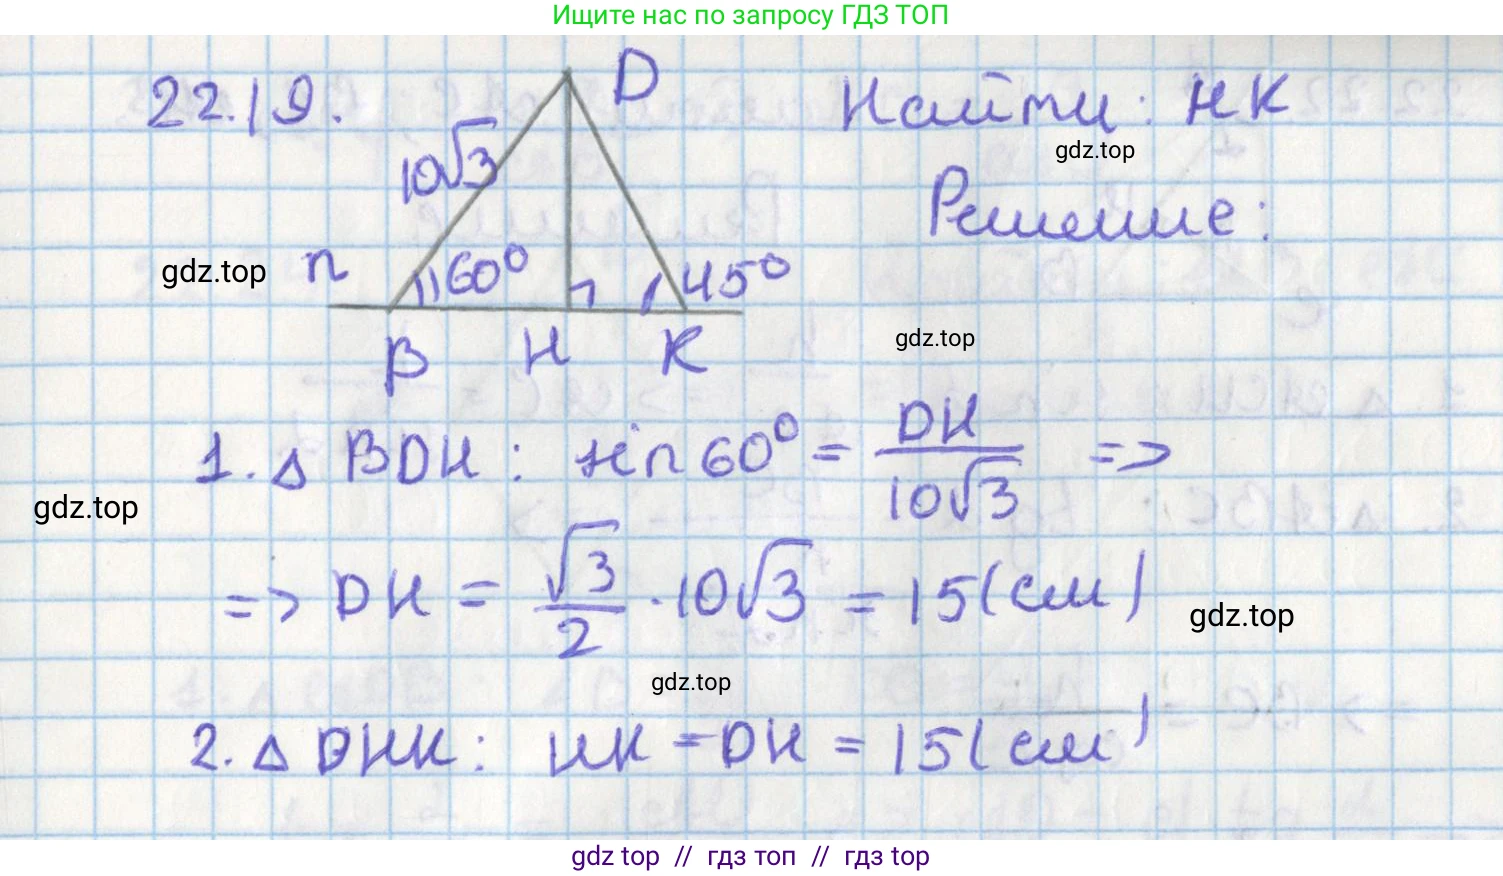 Ищите нас по запросу ГДЗ ТОП
22.19.
D
Найти: HK
10√3
gdz.top
Решение:
gdz.top
n
60°
45°
B
H
K
gdz.top
1. △ BDH: sin 60° = DH / 10√3 =>
gdz.top
=> DH = √3 / 2 · 10√3 = 15 (см)
gdz.top
gdz.top
2. △ DHK: HK = DH = 15 (см)
gdz top // гдз топ // гдз top